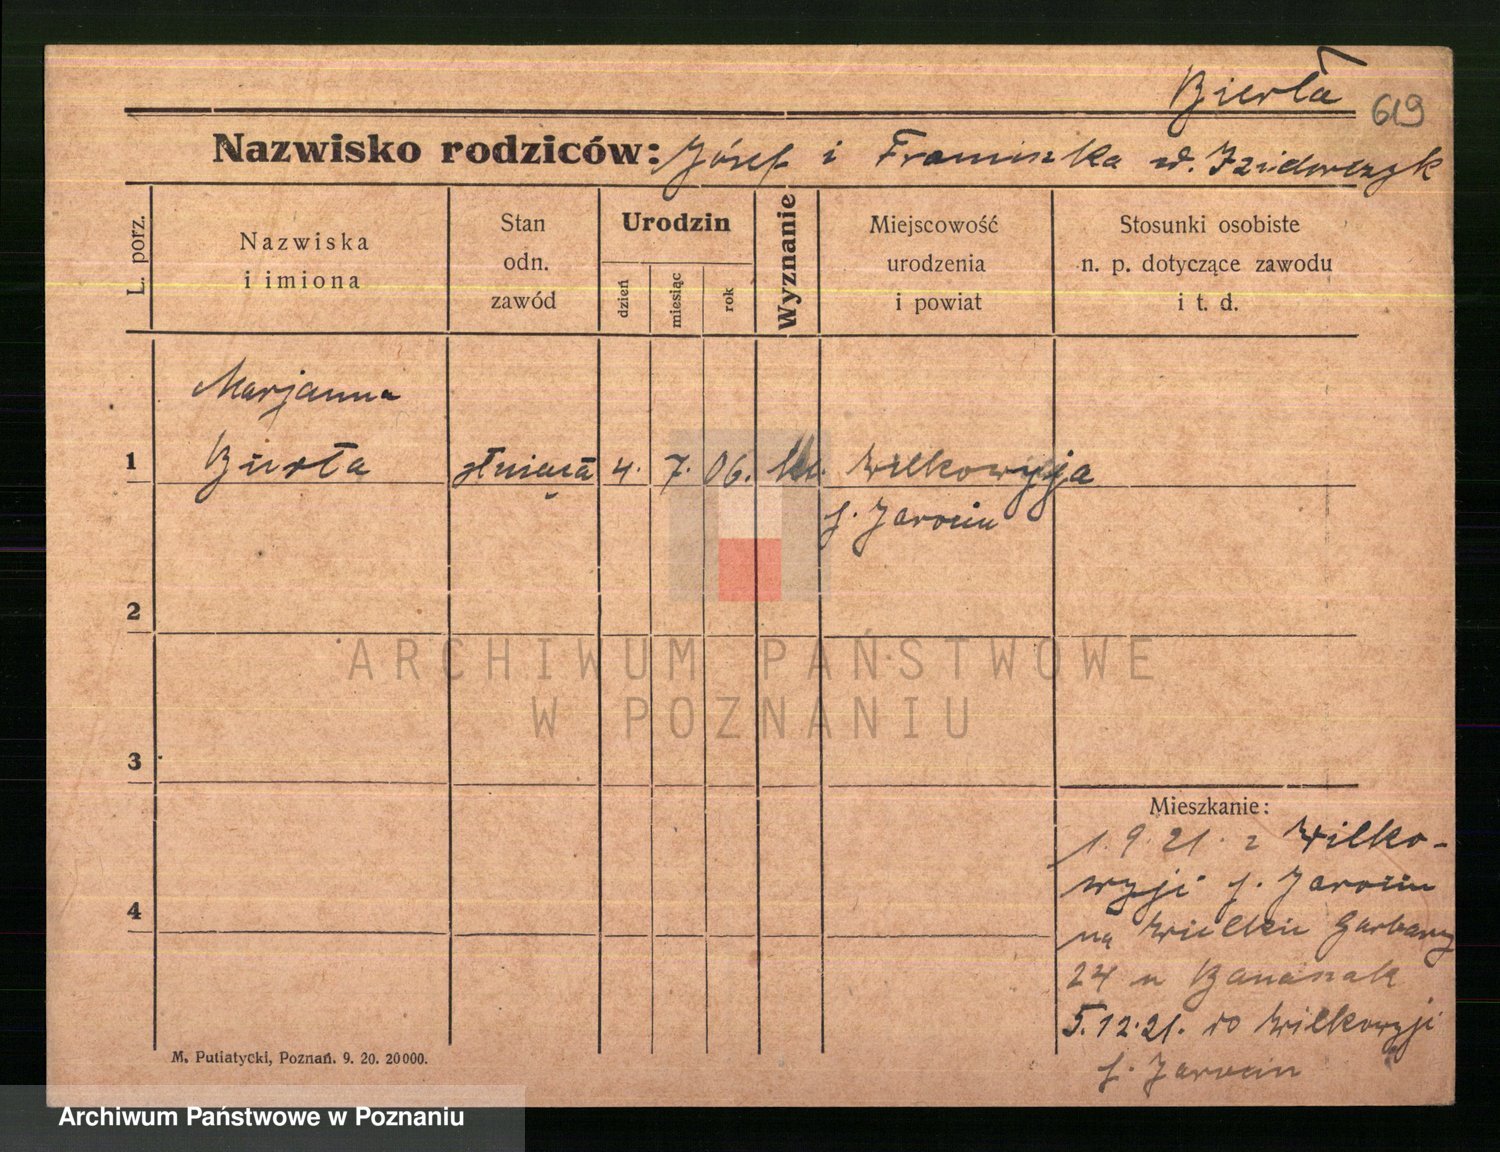 Bierła
619
Nazwisko rodziców: Józef i Franciszka ur. Izydorczyk
L. porz.
Nazwiska
i imiona
Stan
odn.
zawód
Urodzin
dzień
miesiąc
rok
Wyznanie
Miejscowość
urodzenia
i powiat
Stosunki osobiste
n. p. dotyczące zawodu
i t. d.
Marjanna
1 Bierła służąca 4. 7. 06. Wilkowyja
p. Jarocin
2
ARCHIWUM PAŃSTWOWE
W POZNANIU
3
Mieszkanie:
1. 9. 21. z Wilko-
wyji p. Jarocin
na Wielkie Garbary
4
24 u Banaszak
5. 12. 21. do Wilkowyji
p. Jarocin
M. Putiatycki, Poznań. 9. 20. 20000.
Archiwum Państwowe w Poznaniu